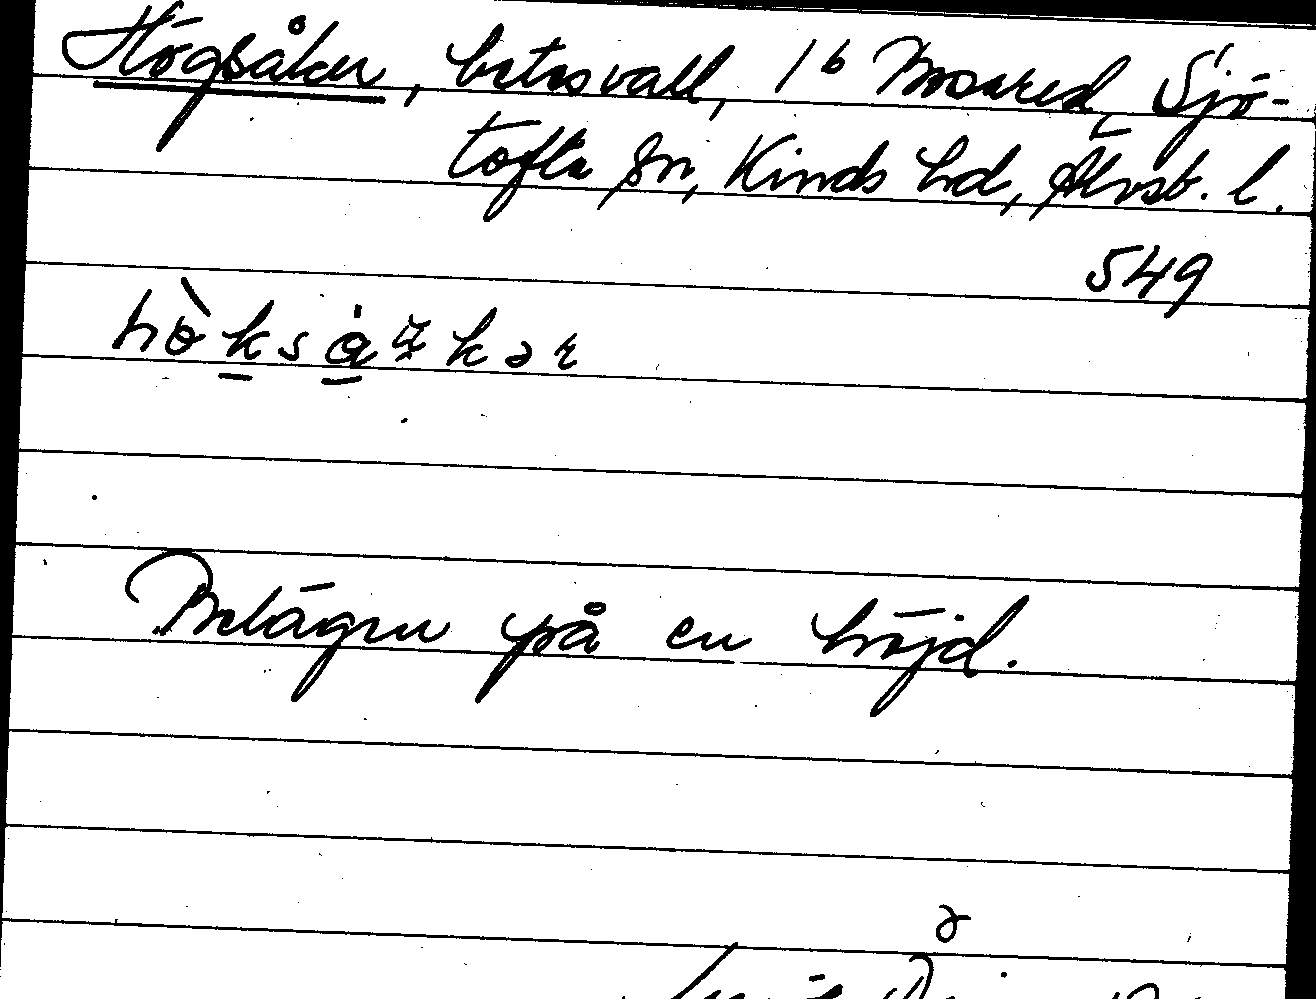 Högsåker, betesvall, 1b Mosared, Sjö-
tofta sn, Kinds hd, Älvsb. l.
549
hò̀ksáʐkər
Belägen på en höjd.